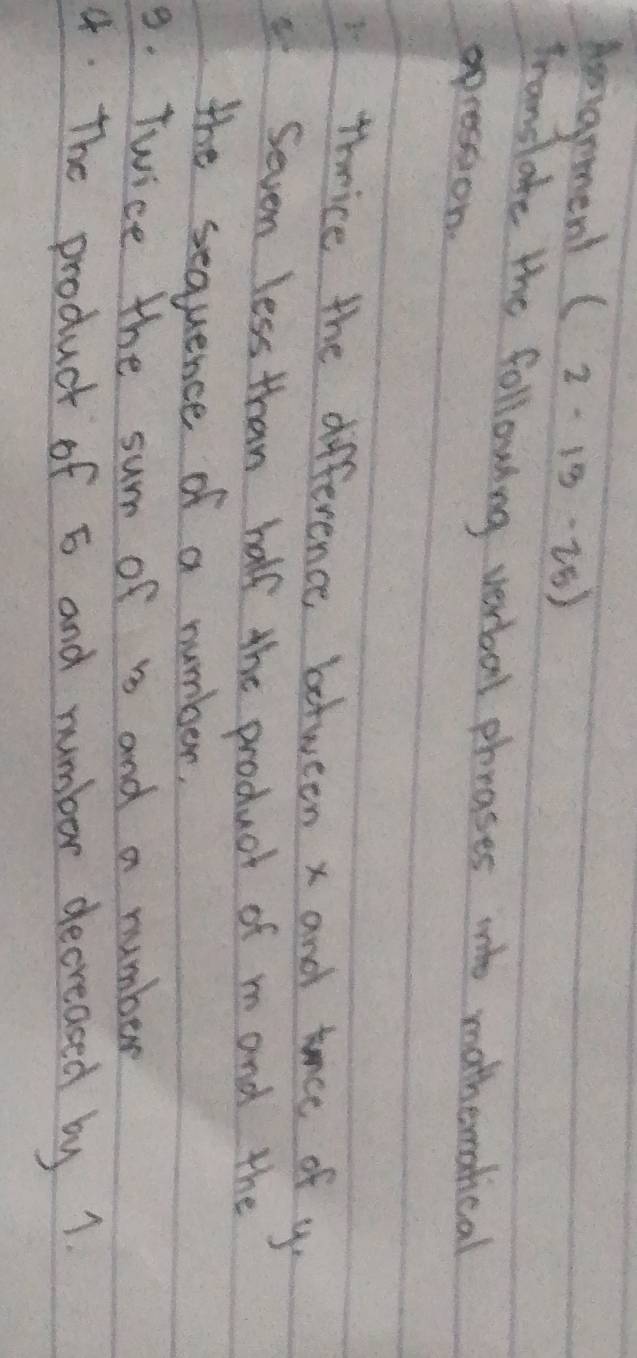 Assignment ( 2 - 19 - 25)
Translate the following verbal phrases into mathematical
expression.
1. Thrice the difference between x and twice of y.
2. Seven less than half the product of m and the
the sequence of a number.
3. Twice the sum of 3 and a number
4. The product of 5 and number decreased by 1.